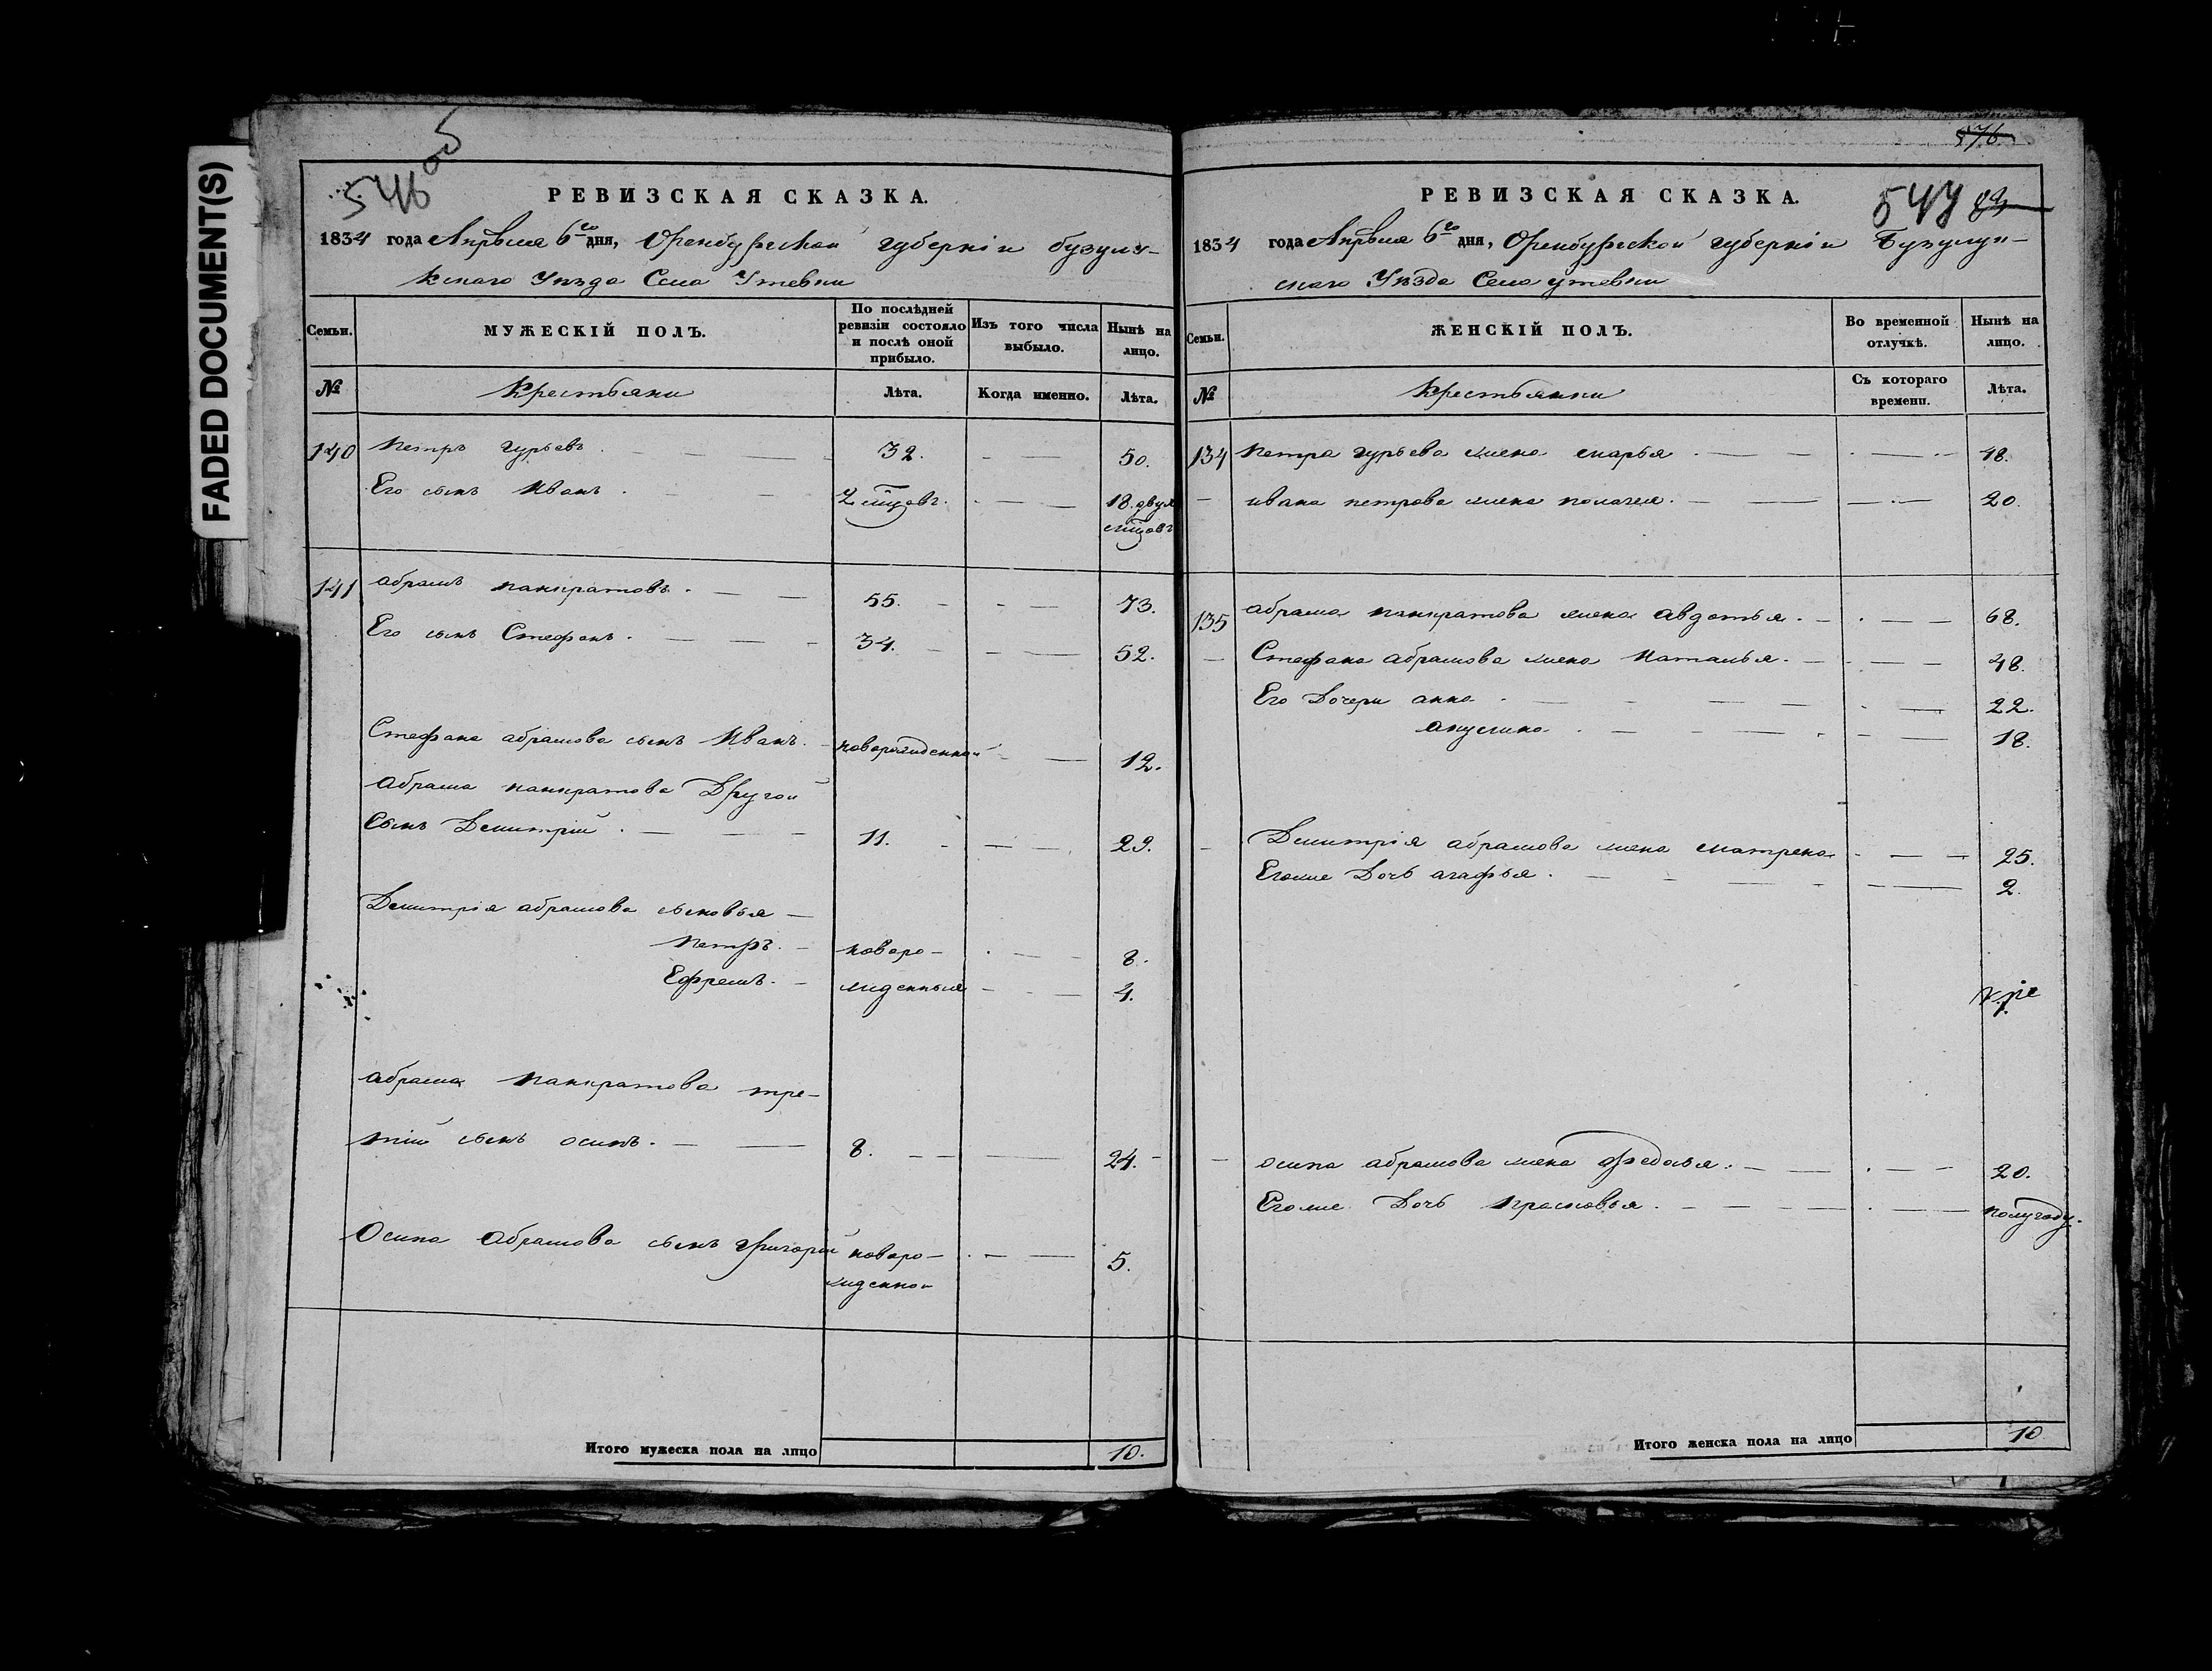 FADED DOCUMENT(S)
546 об
РЕВИЗСКАЯ СКАЗКА.
1834 года Апреля 6го дня, Оренбургской губерніи бузулу-
кскаго Уезда Села Утевки
Семьи.
МУЖЕСКІЙ ПОЛЪ.
По послѣдней ревизіи состояло и послѣ оной прибыло.
Изъ того числа выбыло.
Нынѣ на лицо.
№ Крестьяни Лѣта. Когда именно. Лѣта.
140 петръ гурьевъ 32. 50.
Его сынъ Иванъ 2 мцовъ. 18. двух
мцовъ
141 абрамъ панкратовъ. 55. 73.
Его сынъ Стефанъ. 34. 52.
Стефана абрамова сынъ Иванъ. новорожденной 12.
абрама панкратова Другой
Сынъ Демитрій 11. 29.
Демитрія абрамова сыновья
петръ. новоро- 8.
Ефремъ. жденныя 4.
абрама панкратова тре-
тій сынъ осипъ. 8. 24.
Осипа Абрамова сынъ григорій новоро- 5.
жденной
Итого мужеска пола на лицо 10.
576
РЕВИЗСКАЯ СКАЗКА.
547 83
1834 года Апреля 6го дня, Оренбургской губерніи Бузулук-
скаго Уезда Села утевки
Семьи.
ЖЕНСКІЙ ПОЛЪ.
Во временной отлучкѣ.
Нынѣ на лицо.
№ Крестьянки Съ котораго времени. Лѣта.
134 петра гурьева жена марья 48.
ивана петрова жена 20.
135 абрама панкратова жена авдотья. 68.
Стефана абрамова жена Наталья. 48.
Его Дочери анна 22.
акулина 18.
Демитрія абрамова жена матрена 25.
Егоже Дочь агафья. 2.
осипа абрамова жена федосья. 20.
Егоже Дочь прасковья. полугоду.
Итого женска пола на лицо 10